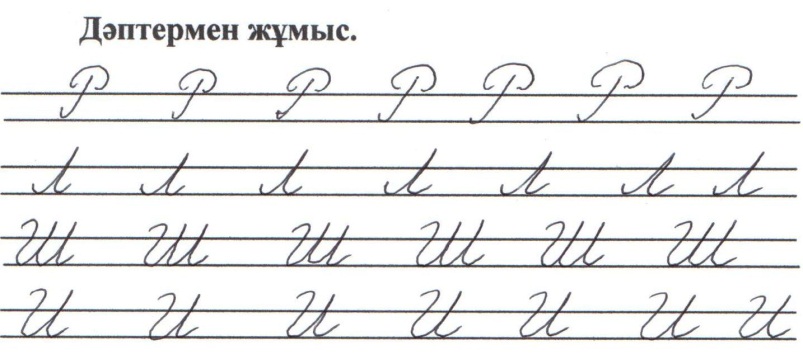 Дәптермен жұмыс.
Р Р Р Р Р Р Р
Л Л Л Л Л Л Л
Ш Ш Ш Ш Ш Ш
И И И И И И И